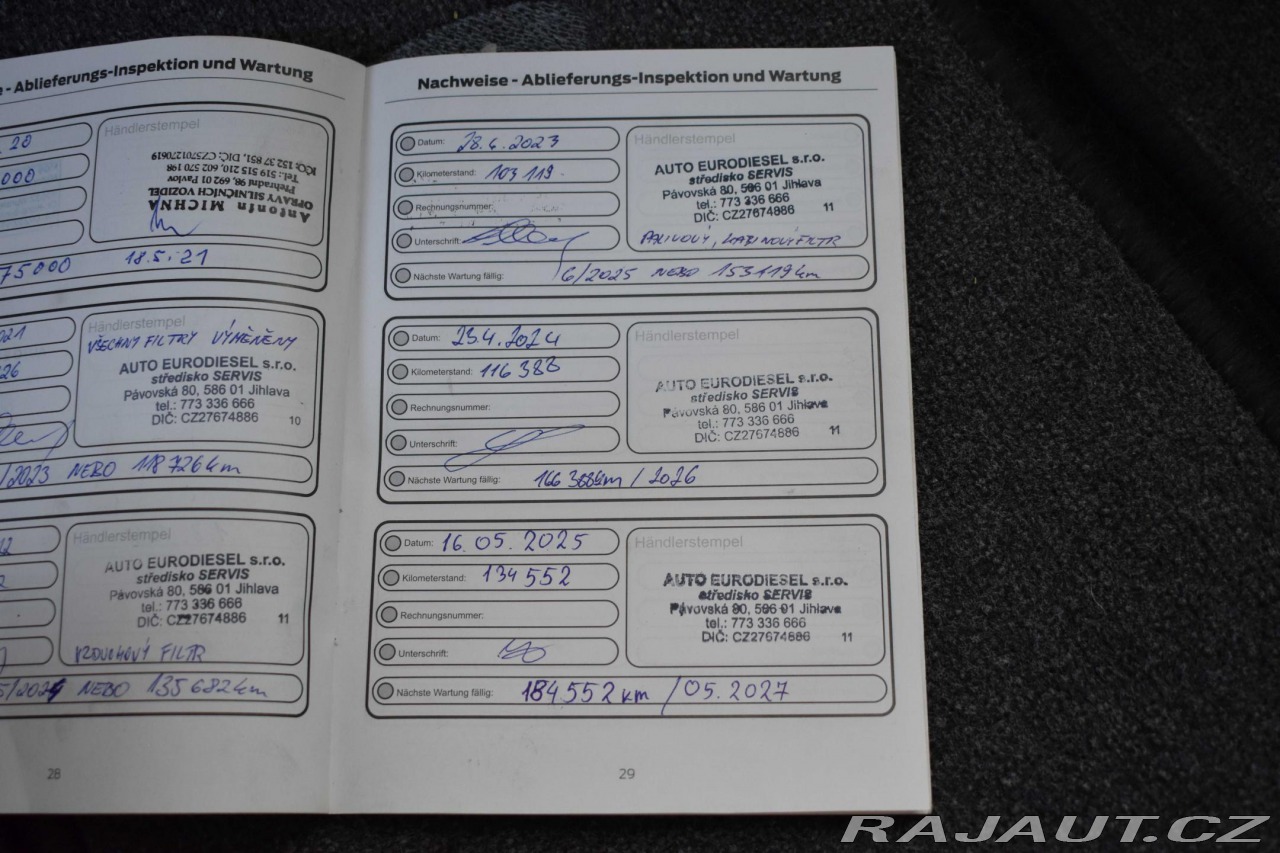 - Ablieferungs-Inspektion und Wartung
20
000
Händlerstempel
Antonín MICHNA
OPRAVY SILNIČNÍCH VOZIDEL
Přehradní 98, 692 01 Pavlov
Tel.: 519 515 210, 602 570 198
IČO: 152 37 851, DIČ: CZ5701270619
75000 18.5.21
021
26
Händlerstempel
VŠECHNY FILTRY VÝMĚNĚNY
AUTO EURODIESEL s.r.o.
středisko SERVIS
Pávovská 80, 586 01 Jihlava
tel.: 773 336 666
DIČ: CZ27674886 10
/2023 NEBO 118726km
Händlerstempel
AUTO EURODIESEL s.r.o.
středisko SERVIS
Pávovská 80, 586 01 Jihlava
tel.: 773 336 666
DIČ: CZ27674886 11
VZDUCHOVÝ FILTR
NEBO 135682km
28
Nachweise - Ablieferungs-Inspektion und Wartung
Datum: 28.6.2023
Kilometerstand: 103 119
Rechnungsnummer:
Unterschrift:
Händlerstempel
AUTO EURODIESEL s.r.o.
středisko SERVIS
Pávovská 80, 586 01 Jihlava
tel.: 773 336 666
DIČ: CZ27674886 11
PALIVOVÝ, FILTR
Nächste Wartung fällig: 6/2025 NEBO 153119km
Datum: 23.4.2024
Kilometerstand: 116 388
Rechnungsnummer:
Unterschrift:
Händlerstempel
AUTO EURODIESEL s.r.o.
středisko SERVIS
Pávovská 80, 586 01 Jihlava
tel.: 773 336 666
DIČ: CZ27674886 11
Nächste Wartung fällig: 166 388km / 2026
Datum: 16.05.2025
Kilometerstand: 134 552
Rechnungsnummer:
Unterschrift:
Händlerstempel
AUTO EURODIESEL s.r.o.
středisko SERVIS
Pávovská 80, 586 01 Jihlava
tel.: 773 336 666
DIČ: CZ27674886 11
Nächste Wartung fällig: 184 552 km / 05.2027
29
RAJAUT.CZ